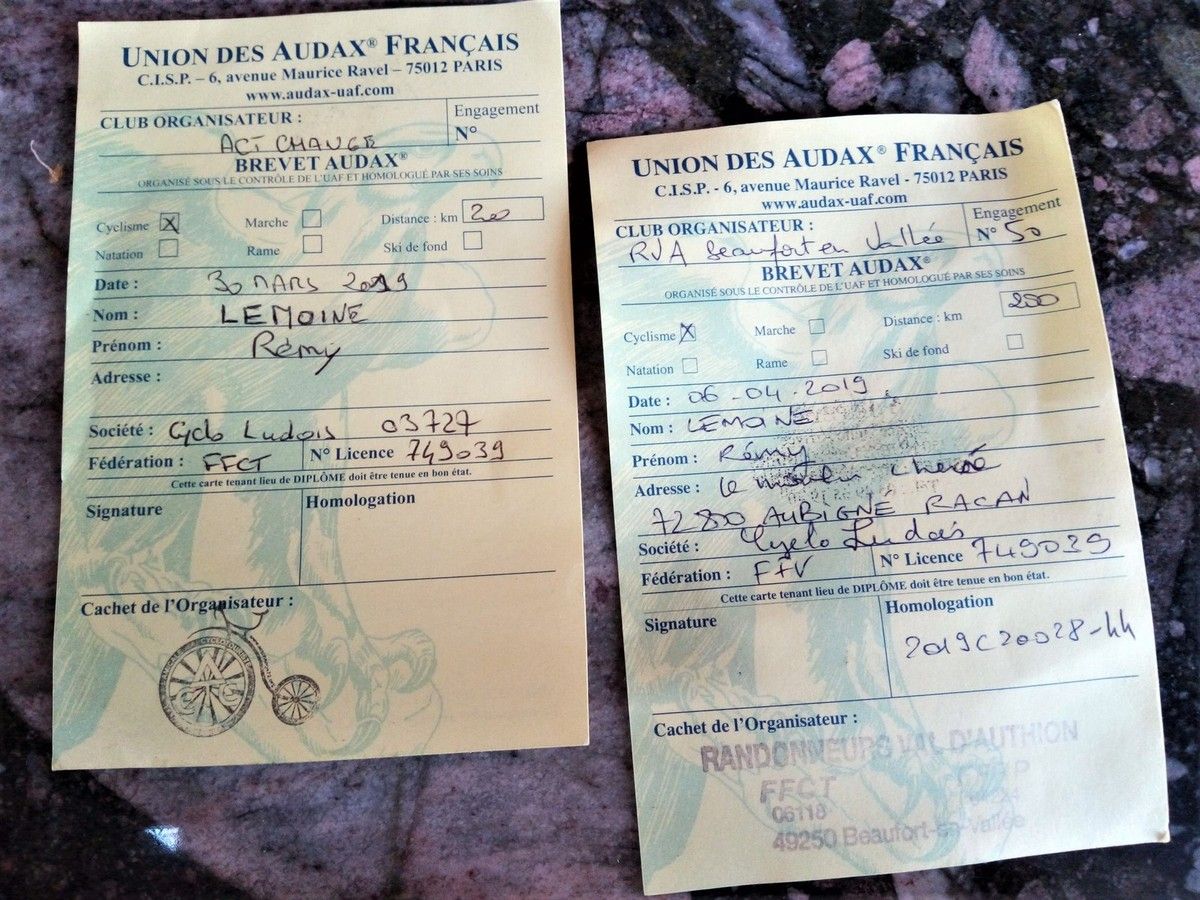 UNION DES AUDAX® FRANÇAIS
C.I.S.P. – 6, avenue Maurice Ravel – 75012 PARIS
www.audax-uaf.com
CLUB ORGANISATEUR : Engagement
ACT CHANGE N°
BREVET AUDAX®
ORGANISÉ SOUS LE CONTRÔLE DE L'UAF ET HOMOLOGUÉ PAR SES SOINS
Cyclisme X Marche Distance : km 200
Natation Rame Ski de fond
Date : 30 MARS 2019
Nom : LEMOINE
Prénom : Rémy
Adresse :
Société : Cyclo Ludois 03727
Fédération : FFCT N° Licence 749039
Cette carte tenant lieu de DIPLÔME doit être tenue en bon état.
Signature Homologation
Cachet de l'Organisateur :
UNION DES AUDAX® FRANÇAIS
C.I.S.P. - 6, avenue Maurice Ravel - 75012 PARIS
www.audax-uaf.com
CLUB ORGANISATEUR : Engagement
RVA Beaufort en Vallée N° 50
BREVET AUDAX®
ORGANISÉ SOUS LE CONTRÔLE DE L'UAF ET HOMOLOGUÉ PAR SES SOINS
Cyclisme X Marche Distance : km 200
Natation Rame Ski de fond
Date : 06-04-2019
Nom : LEMOINE
Prénom : Rémy
Adresse : Le moulin
72800 AUBIGNÉ RACAN
Société : Cyclo Ludois
Fédération : FFV N° Licence 749039
Cette carte tenant lieu de DIPLÔME doit être tenue en bon état.
Signature Homologation
2019C20028-44
Cachet de l'Organisateur :
RANDONNEURS VAL D'AUTHION
FFCT
06118
49250 Beaufort-en-Vallée